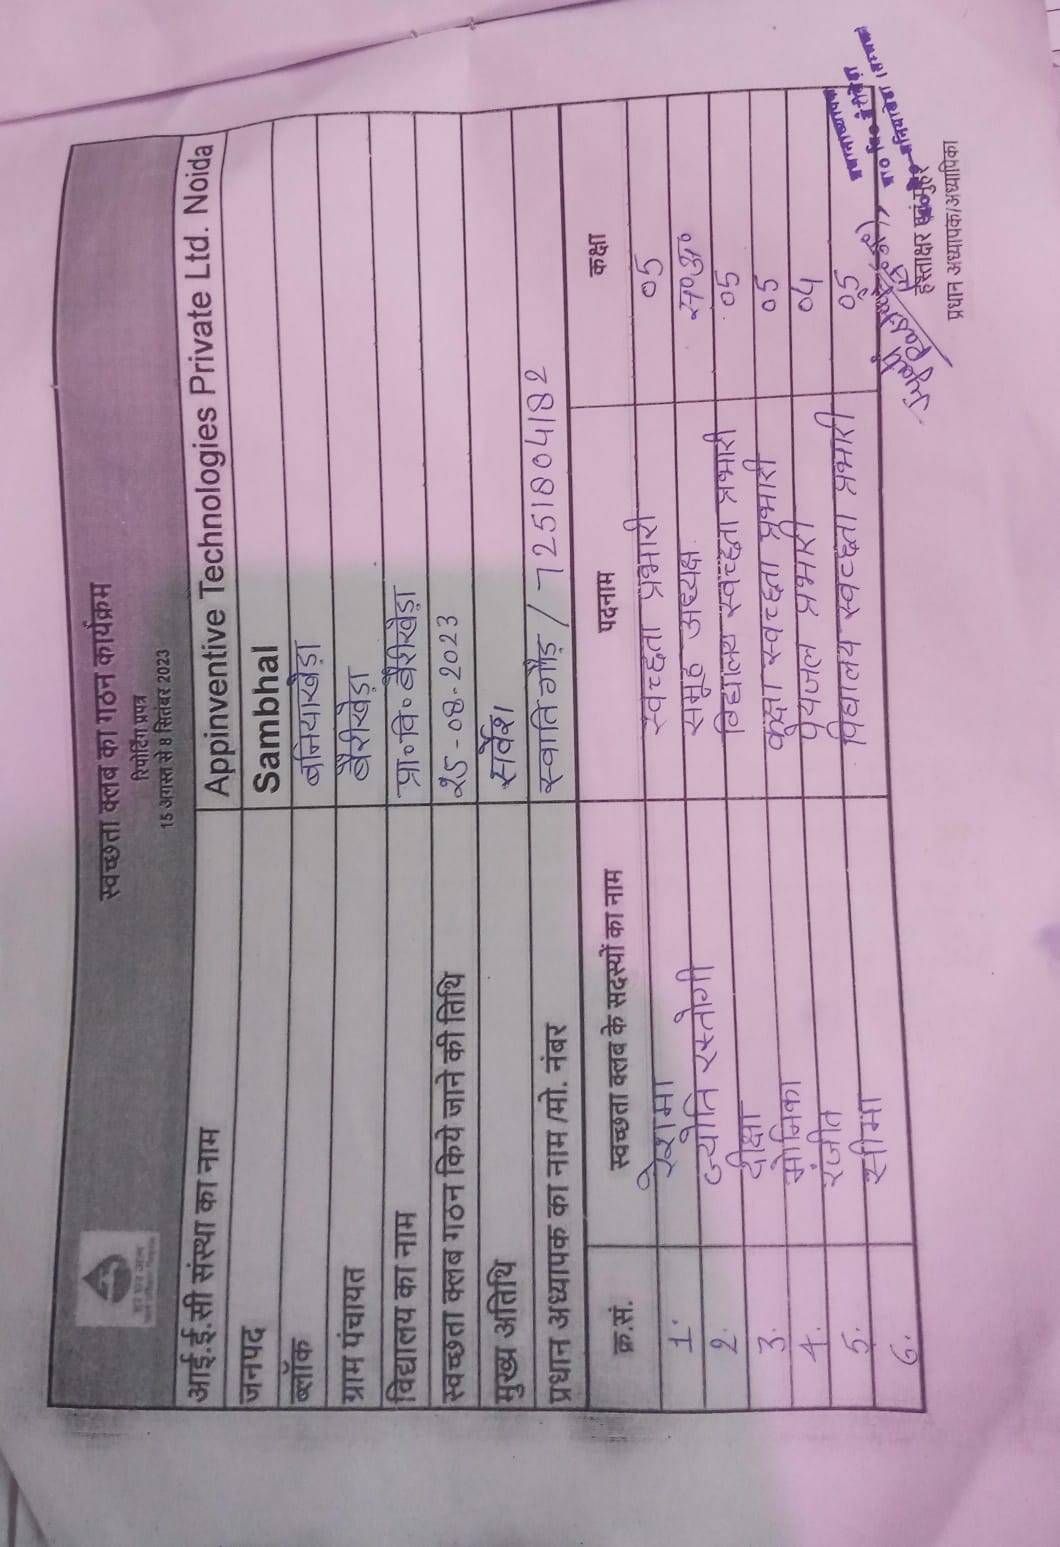 स्वच्छता क्लब का गठन कार्यक्रम
रिपोर्टिंग प्रपत्र
15 अगस्त से 8 सितंबर 2023
हर घर जल
आई.ई.सी संस्था का नाम Appinventive Technologies Private Ltd. Noida
जनपद Sambhal
ब्लॉक बनियाखेड़ा
ग्राम पंचायत बैरीखेड़ा
विद्यालय का नाम प्रा०वि० बैरीखेड़ा
स्वच्छता क्लब गठन किये जाने की तिथि 25-08-2023
मुख्य अतिथि सर्वेश
प्रधान अध्यापक का नाम /मो. नंबर स्वाति गौड़ / 7251804182
क्र.सं. स्वच्छता क्लब के सदस्यों का नाम पदनाम कक्षा
1. रेशमा स्वच्छता प्रभारी 05
2. ज्योति रस्तोगी समूह अध्यक्ष स०अ०
3. दीक्षा विद्यालय स्वच्छता प्रभारी 05
4. मोनिका कक्षा स्वच्छता प्रभारी 05
5. रंजीत पेयजल प्रभारी 04
6. सीमा विद्यालय स्वच्छता प्रभारी 05
हस्ताक्षर एवं मुहर
प्रधान अध्यापक/अध्यापिका